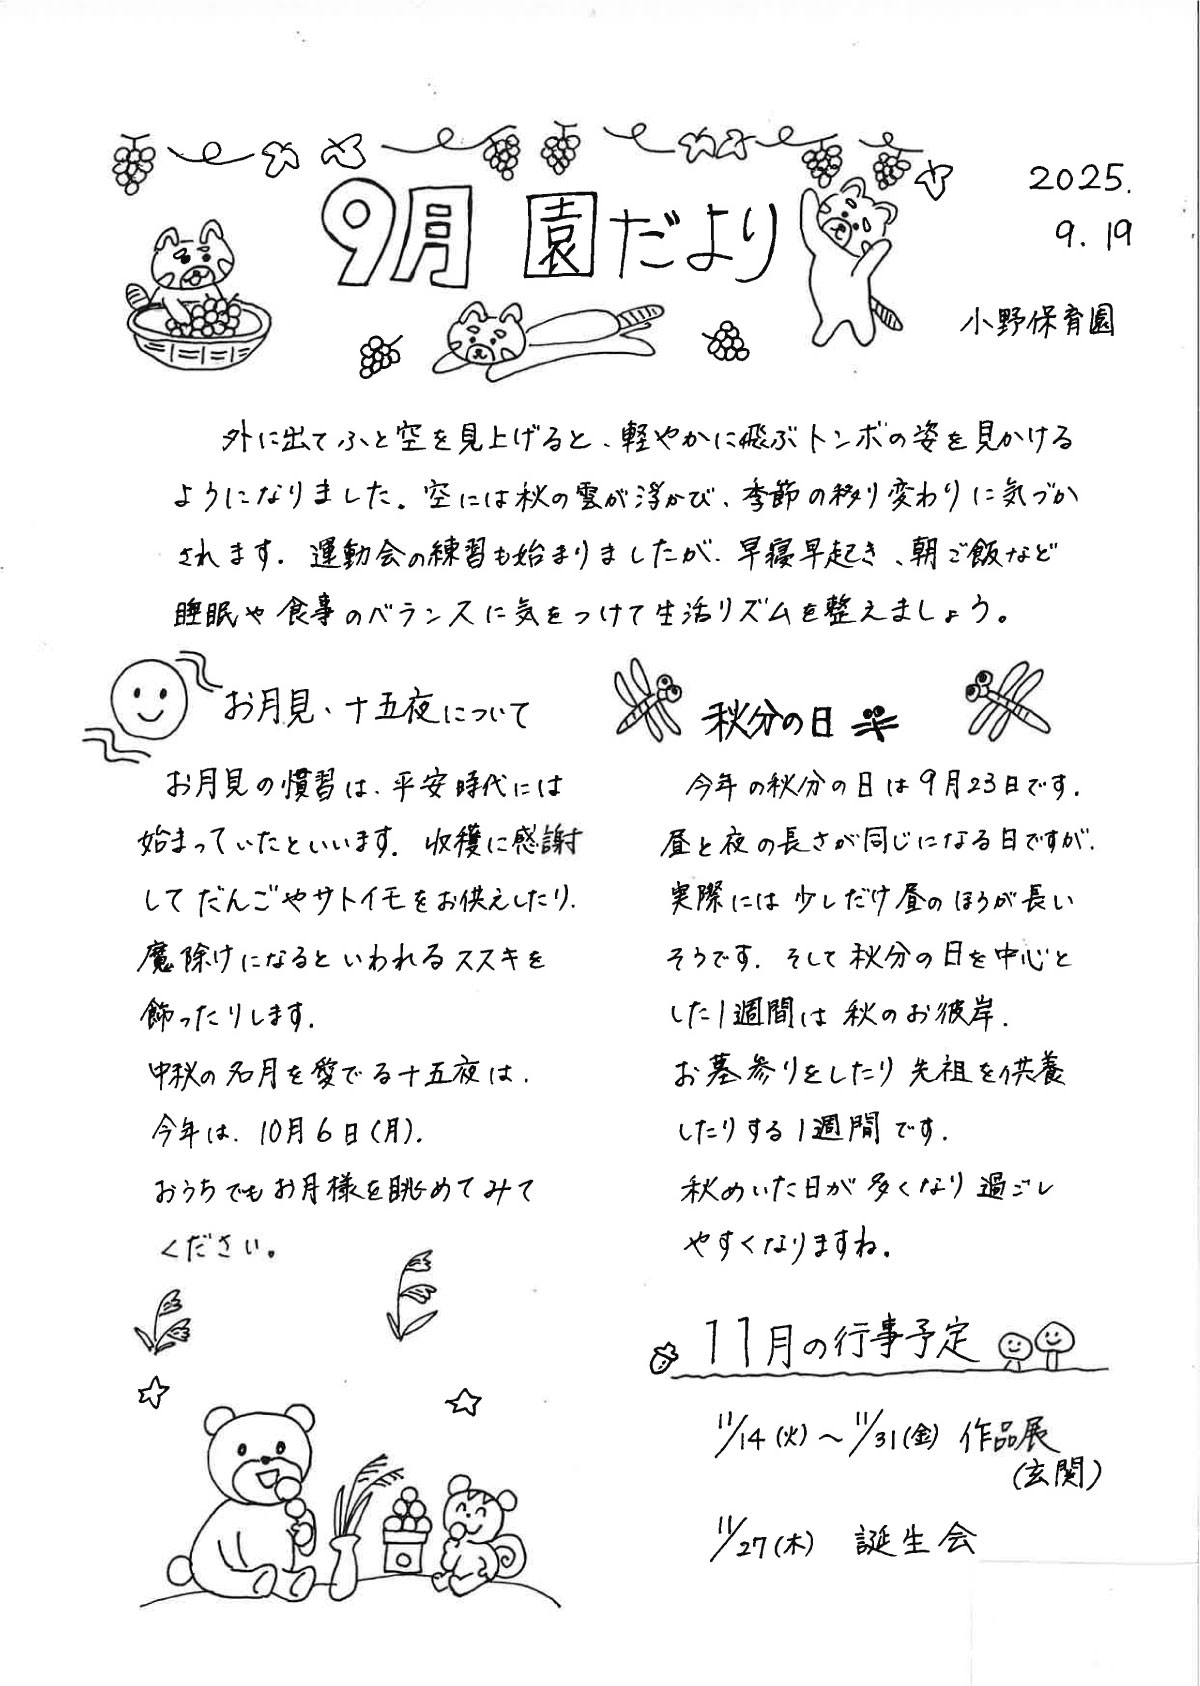 9月 園だより
2025.
9.19
小野保育園
外に出てふと空を見上げると、軽やかに飛ぶトンボの姿を見かける
ようになりました。空には秋の雲が浮かび、季節の移り変わりに気づか
されます。運動会の練習も始まりましたが、早寝早起き、朝ご飯など
睡眠や食事のバランスに気をつけて生活リズムを整えましょう。
お月見、十五夜について
お月見の慣習は、平安時代には
始まっていたといいます。収穫に感謝
してだんごやサトイモをお供えしたり、
魔除けになるといわれるススキを
飾ったりします。
中秋の名月を愛でる十五夜は、
今年は、10月6日(月)。
おうちでもお月様を眺めてみて
ください。
秋分の日
今年の秋分の日は9月23日です。
昼と夜の長さが同じになる日ですが、
実際には少しだけ昼のほうが長い
そうです。そして秋分の日を中心と
した1週間は秋のお彼岸。
お墓参りをしたり先祖を供養
したりする1週間です。
秋めいた日が多くなり過ごし
やすくなりますね。
11月の行事予定
11/14(火)～11/31(金) 作品展
(玄関)
11/27(木) 誕生会